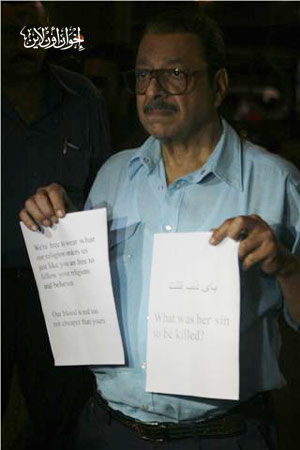 إخوان أون لاين
We're free to wear what
our religion orders us
just like you're free to
follow your religions
and believes.
Our blood is red too,
not cheaper than yours.
بأى ذنب قتلت
What was her sin
to be killed?